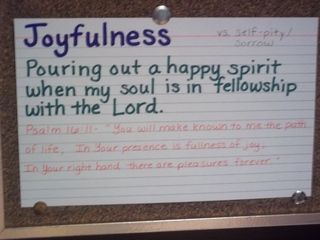 Joyfulness
vs. self-pity/
sorrow
Pouring out a happy spirit
when my soul is in fellowship
with the Lord.
Psalm 16:11- "You will make known to me the path
of life; In Your presence is fullness of joy;
In Your right hand there are pleasures forever."